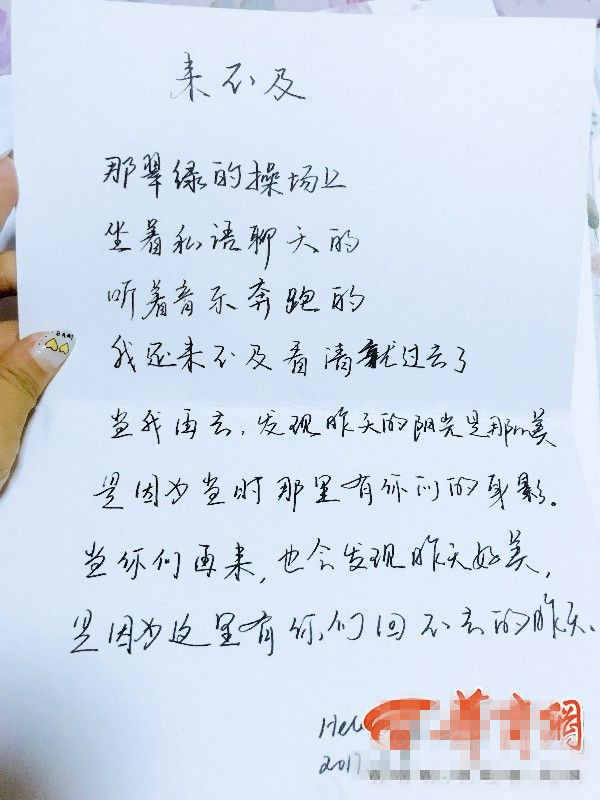 来不及
那翠绿的操场上
坐着私语聊天的
听着音乐奔跑的
我还来不及看清就过去了
当我再去，发现昨天的阳光是那么美
是因为当时那里有你们的身影。
当你们再来，也会发现昨天好美，
是因为这里有你们回不去的昨天。
Hel
2017
华商网